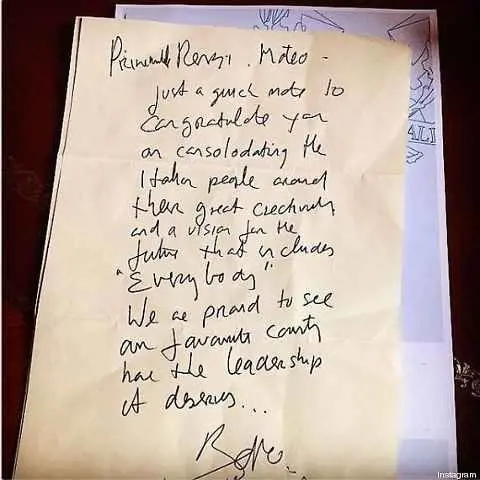 Renzi. Mateo -
just a quick note to
congratulate you
on consolodating the
Italian people around
their great
and a vision for the
future that includes
"Everybody"
We are proud to see
our favourite country
have the leadership
it deserves...
ALI
Instagram